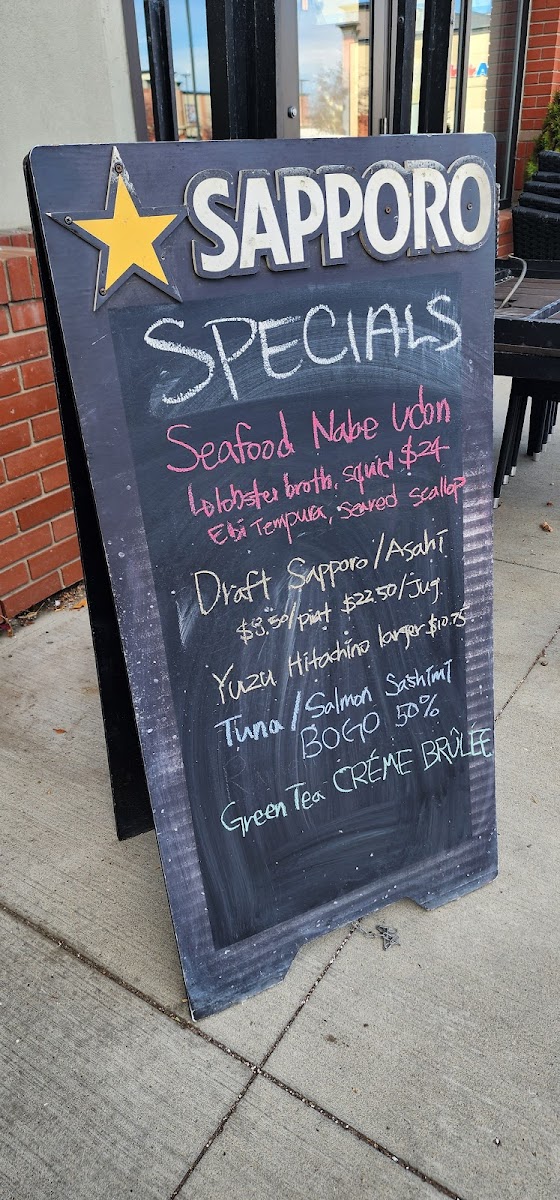 SAPPORO
SPECIALS
Seafood Nabe udon
Lolobster broth, squid $24
Ebi Tempura, seared scallop
Draft Sapporo/Asahi
$8.50/pint $22.50/Jug
Yuzu Hitachino larger $10.75
Tuna/Salmon Sashimi
BOGO 50%
Green Tea CRÉME BRÛLÉE